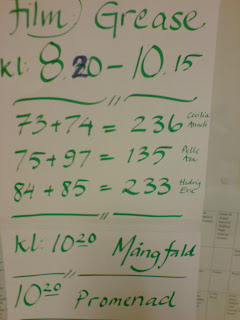 film: Grease
kl: 8.20 - 10.15
73+74 = 236 Cecilia
75+97 = 135 Pelle
84+85 = 233 Hedvig Eric
kl: 10 20 Mångfald
10 20 Promenad